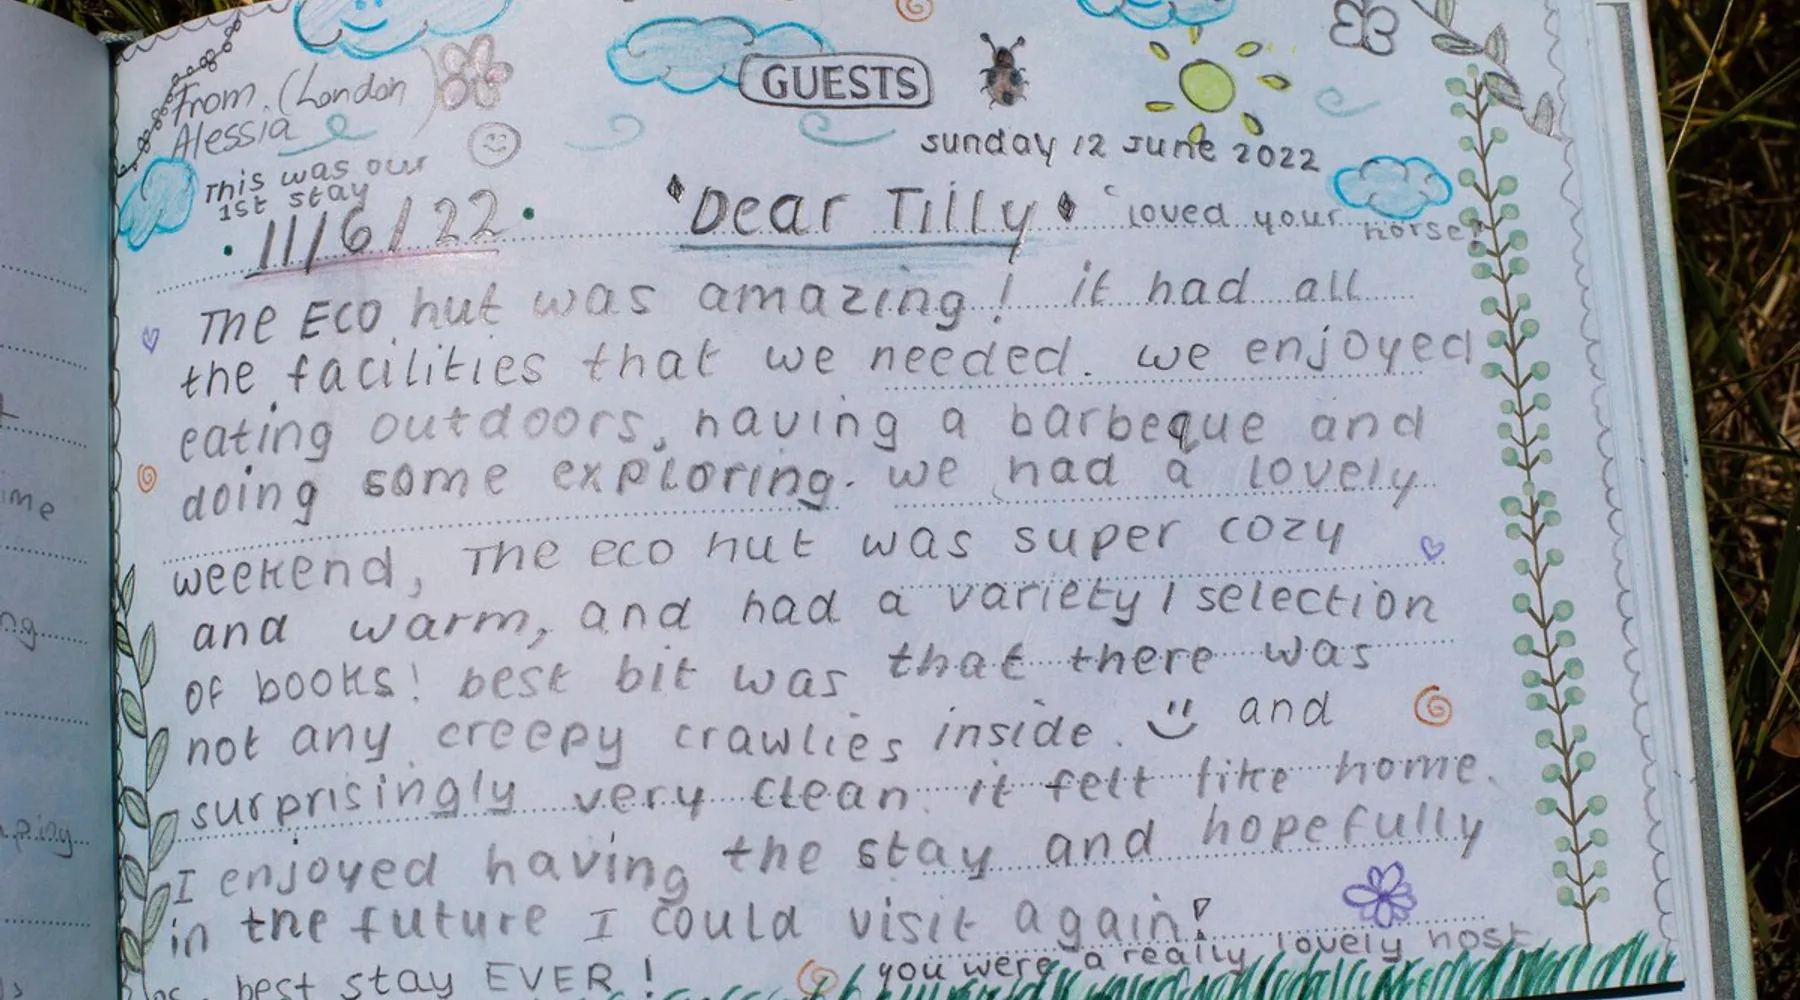 From (London)
Alessia
GUESTS
sunday 12 June 2022
This was our
1st stay
11/6/22
Dear Tilly
loved your
horse!
The Eco hut was amazing! it had all
the facilities that we needed. we enjoyed
eating outdoors, having a barbeque and
doing some exploring. we had a lovely
weekend, The eco hut was super cozy
and warm, and had a variety / selection
of books! best bit was that there was
not any creepy crawlies inside. and
surprisingly very clean. it felt like home.
I enjoyed having the stay and hopefully
in the future I could visit again!
best stay EVER!
you were a really lovely host
ime
ng
ping